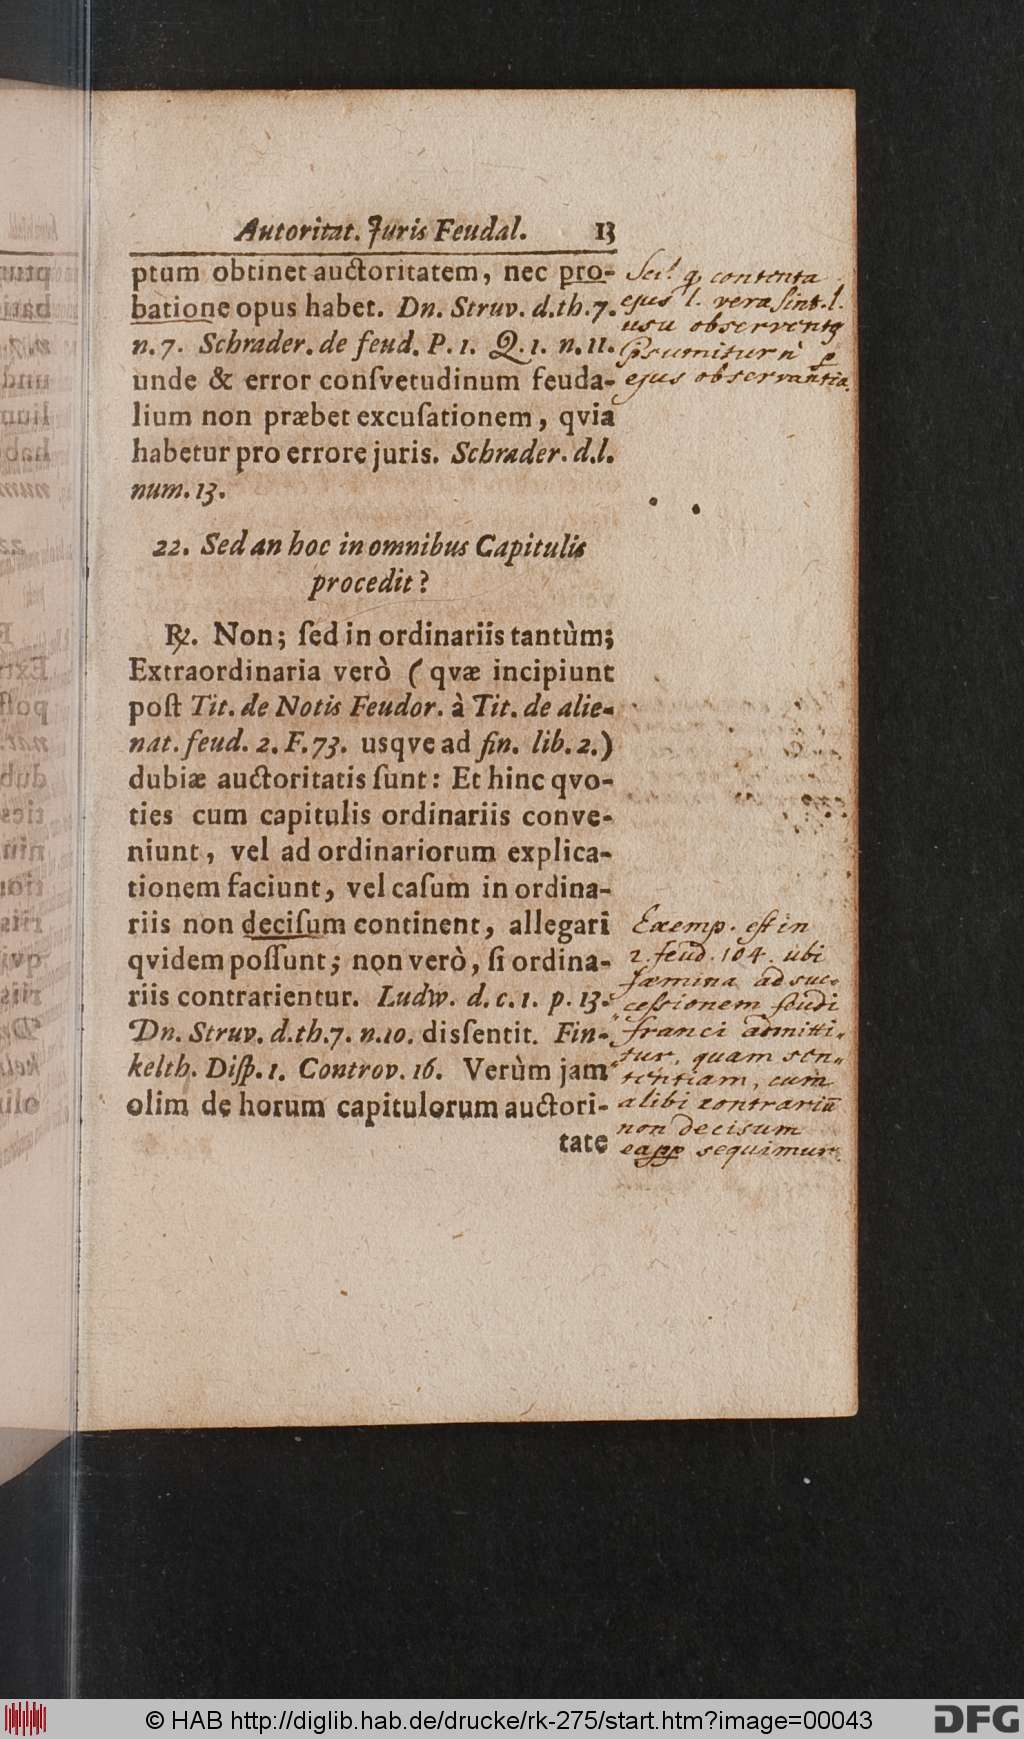 Autoritat. Juris Feudal. 13
ptum obtinet auctoritatem, nec pro-
batione opus habet. Dn. Struv. d.th.7.
n.7. Schrader. de feud. P. 1. Q. 1. n. 11.
unde & error conſvetudinum feuda-
lium non præbet excuſationem, qvia
habetur pro errore juris. Schrader. d.l.
num. 13.
Sci! q contenta
ejus l. vera sint. l.
usu observentq
psumitur n
ejus observantia.
22. Sed an hoc in omnibus Capitulis
procedit?
R. Non; ſed in ordinariis tantùm;
Extraordinaria verò (qvæ incipiunt
poſt Tit. de Notis Feudor. à Tit. de alie-
nat. feud. 2. F. 73. usqve ad fin. lib. 2.)
dubiæ auctoritatis ſunt: Et hinc qvo-
ties cum capitulis ordinariis conve-
niunt, vel ad ordinariorum explica-
tionem faciunt, vel caſum in ordina-
riis non deciſum continent, allegari
qvidem poſſunt; non verò, ſi ordina-
riis contrarientur. Ludw. d. c. 1. p. 13.
Dn. Struv. d.th.7. n.10. disſentit. Fin-
kelth. Diſp. 1. Controv. 16. Verùm jam
olim de horum capitulorum auctori-
tate
Exemp. est in
2. feud. 104. ubi
fæmina ad suc-
cessionem feudi
franci admitti-
tur, quam sen-
tentiam, cum
alibi contrariū
non decisum
sequimur.
© HAB http://diglib.hab.de/drucke/rk-275/start.htm?image=00043
DFG